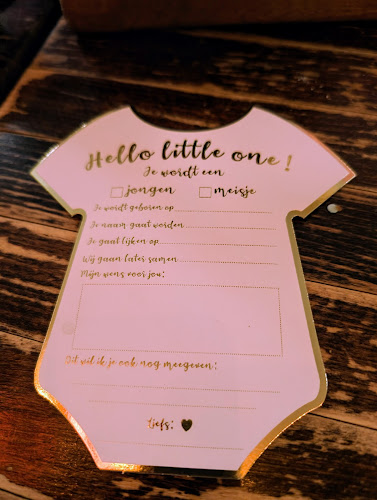 Hello little one!
Je wordt een
jongen meisje
Je wordt geboren op
Je naam gaat worden
Je gaat lijken op
Wij gaan later samen
Mijn wens voor jou:
Dit wil ik je ook nog meegeven:
Liefs: